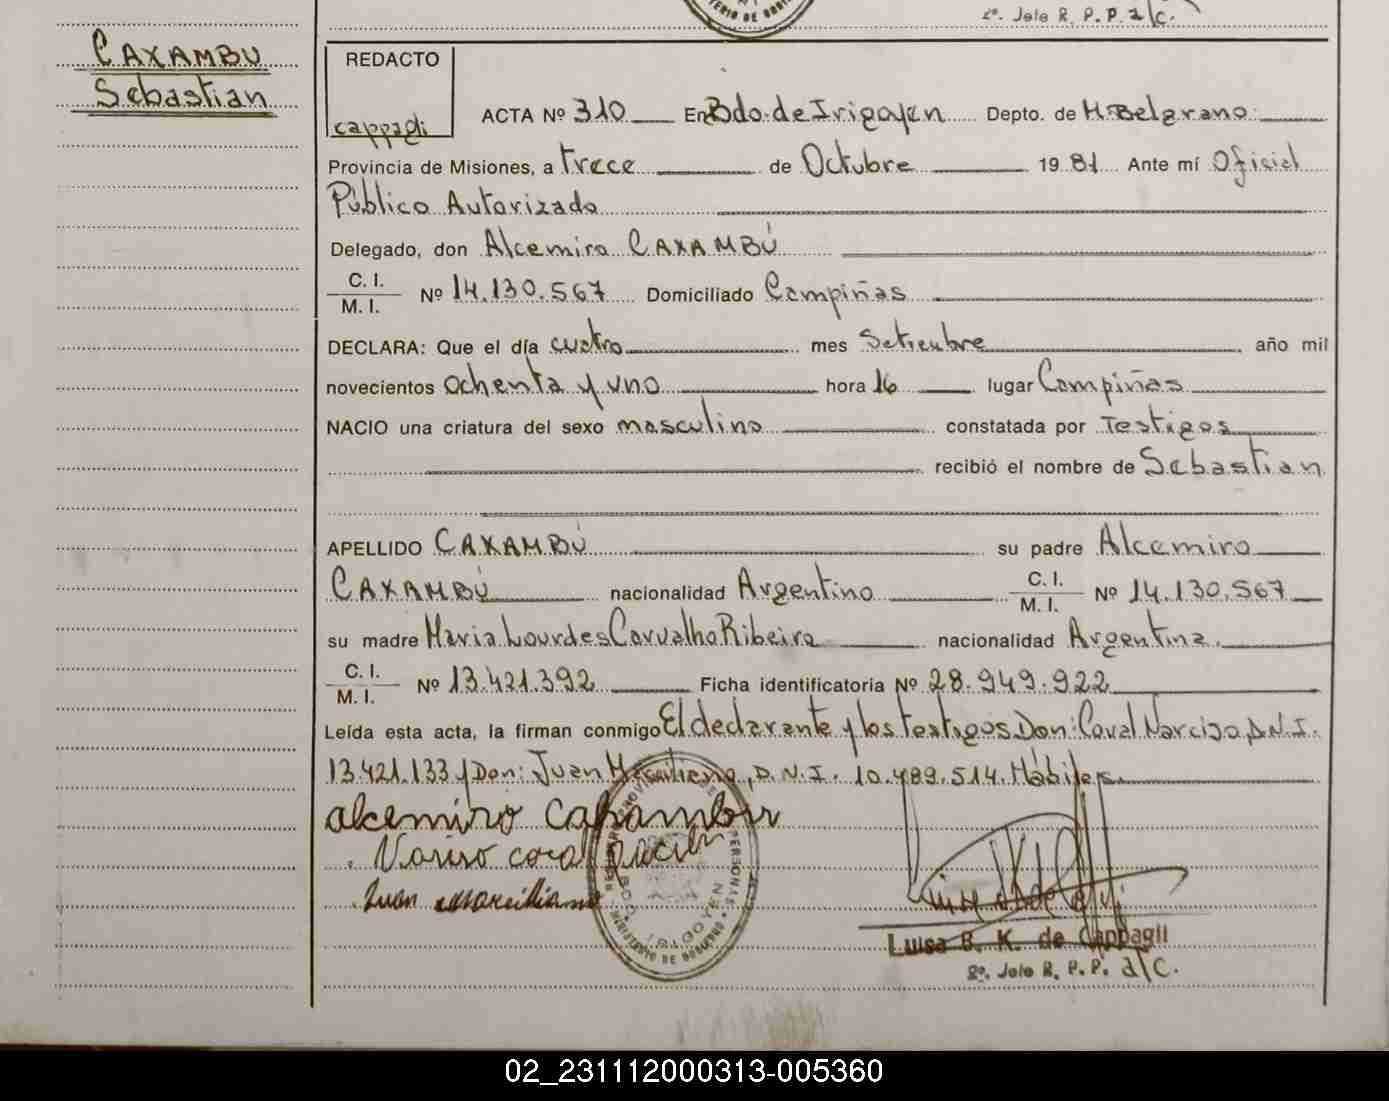 2º. Jefe R. P. P. a/c.
CAXAMBU
Sebastian
REDACTO
cappagli
ACTA Nº 310 En Bdo. de Irigoyen Depto. de M. Belgrano
Provincia de Misiones, a trece de Octubre 1981 Ante mí Oficial
Público Autorizado
Delegado, don Alcemiro CAXAMBÚ
C. I.
M. I. Nº 14.130.567 Domiciliado Campiñas
DECLARA: Que el día cuatro mes Setiembre año mil
novecientos ochenta y uno hora 16 lugar Campiñas
NACIO una criatura del sexo masculino constatada por Testigos
recibió el nombre de Sebastian
APELLIDO CAXAMBÚ su padre Alcemiro
CAXAMBÚ nacionalidad Argentino C. I. M. I. Nº 14.130.567
su madre Maria Lourdes Carvalho Ribeiro nacionalidad Argentina.
C. I.
M. I. Nº 13.421.392 Ficha identificatoria Nº 28.949.922
Leída esta acta, la firman conmigo El declarante y los testigos Don: Coral Narciso, D.N.I.
13.421.133 y Don: Juan Marciliano, D.N.I. 10.489.514. Hábiles.
alcemiro
Juan Marciliano
BDO. IRIGOYEN
MINISTERIO DE GOBIERNO
Luisa B. K. de Cappagli
2º. Jefe R. P. P. a/c.
02_231112000313-005360